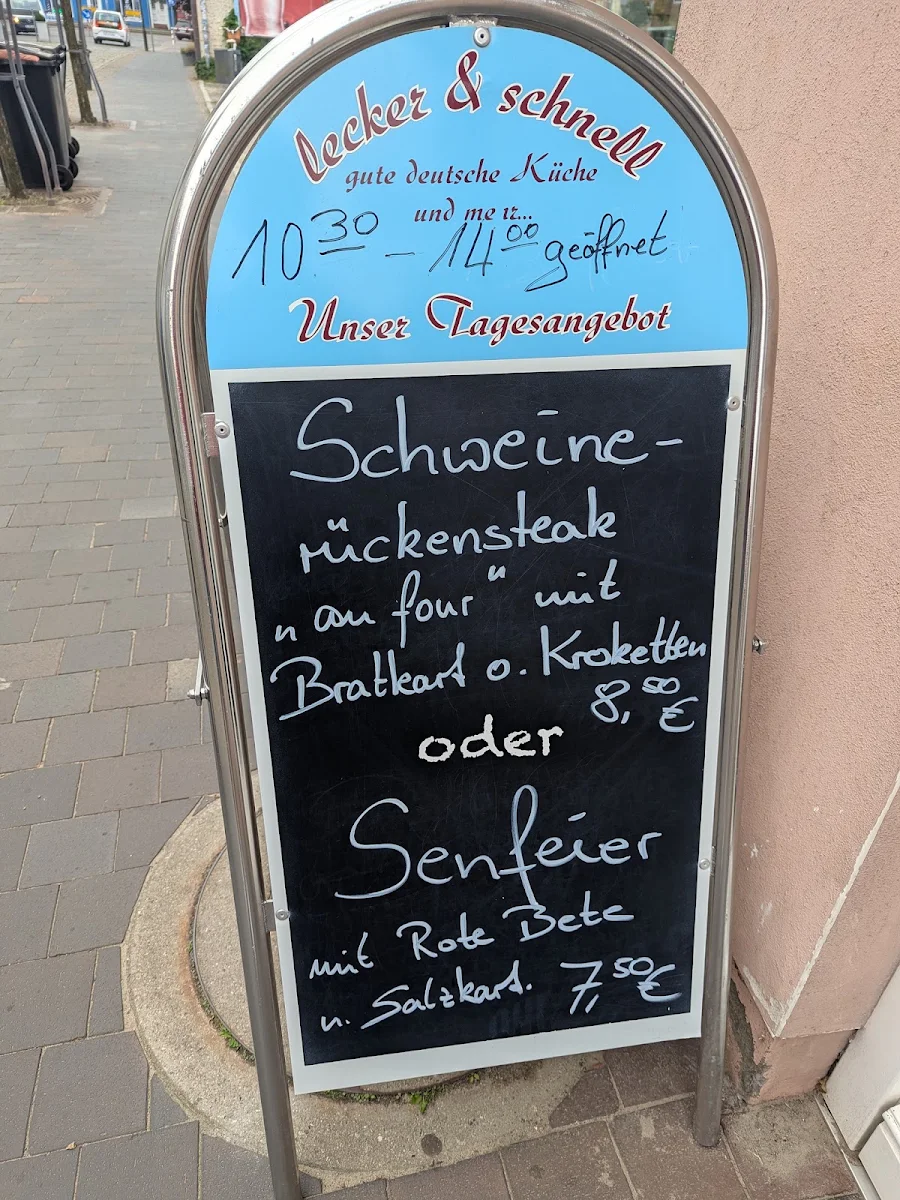 lecker & schnell
gute deutsche Küche
und mehr...
10 30 – 14 00 geöffnet
Unser Tagesangebot
Schweine-
rückensteak
„au four“ mit
Bratkart o. Kroketten
8,50 €
oder
Senfeier
mit Rote Bete
u. Salzkart. 7,50€